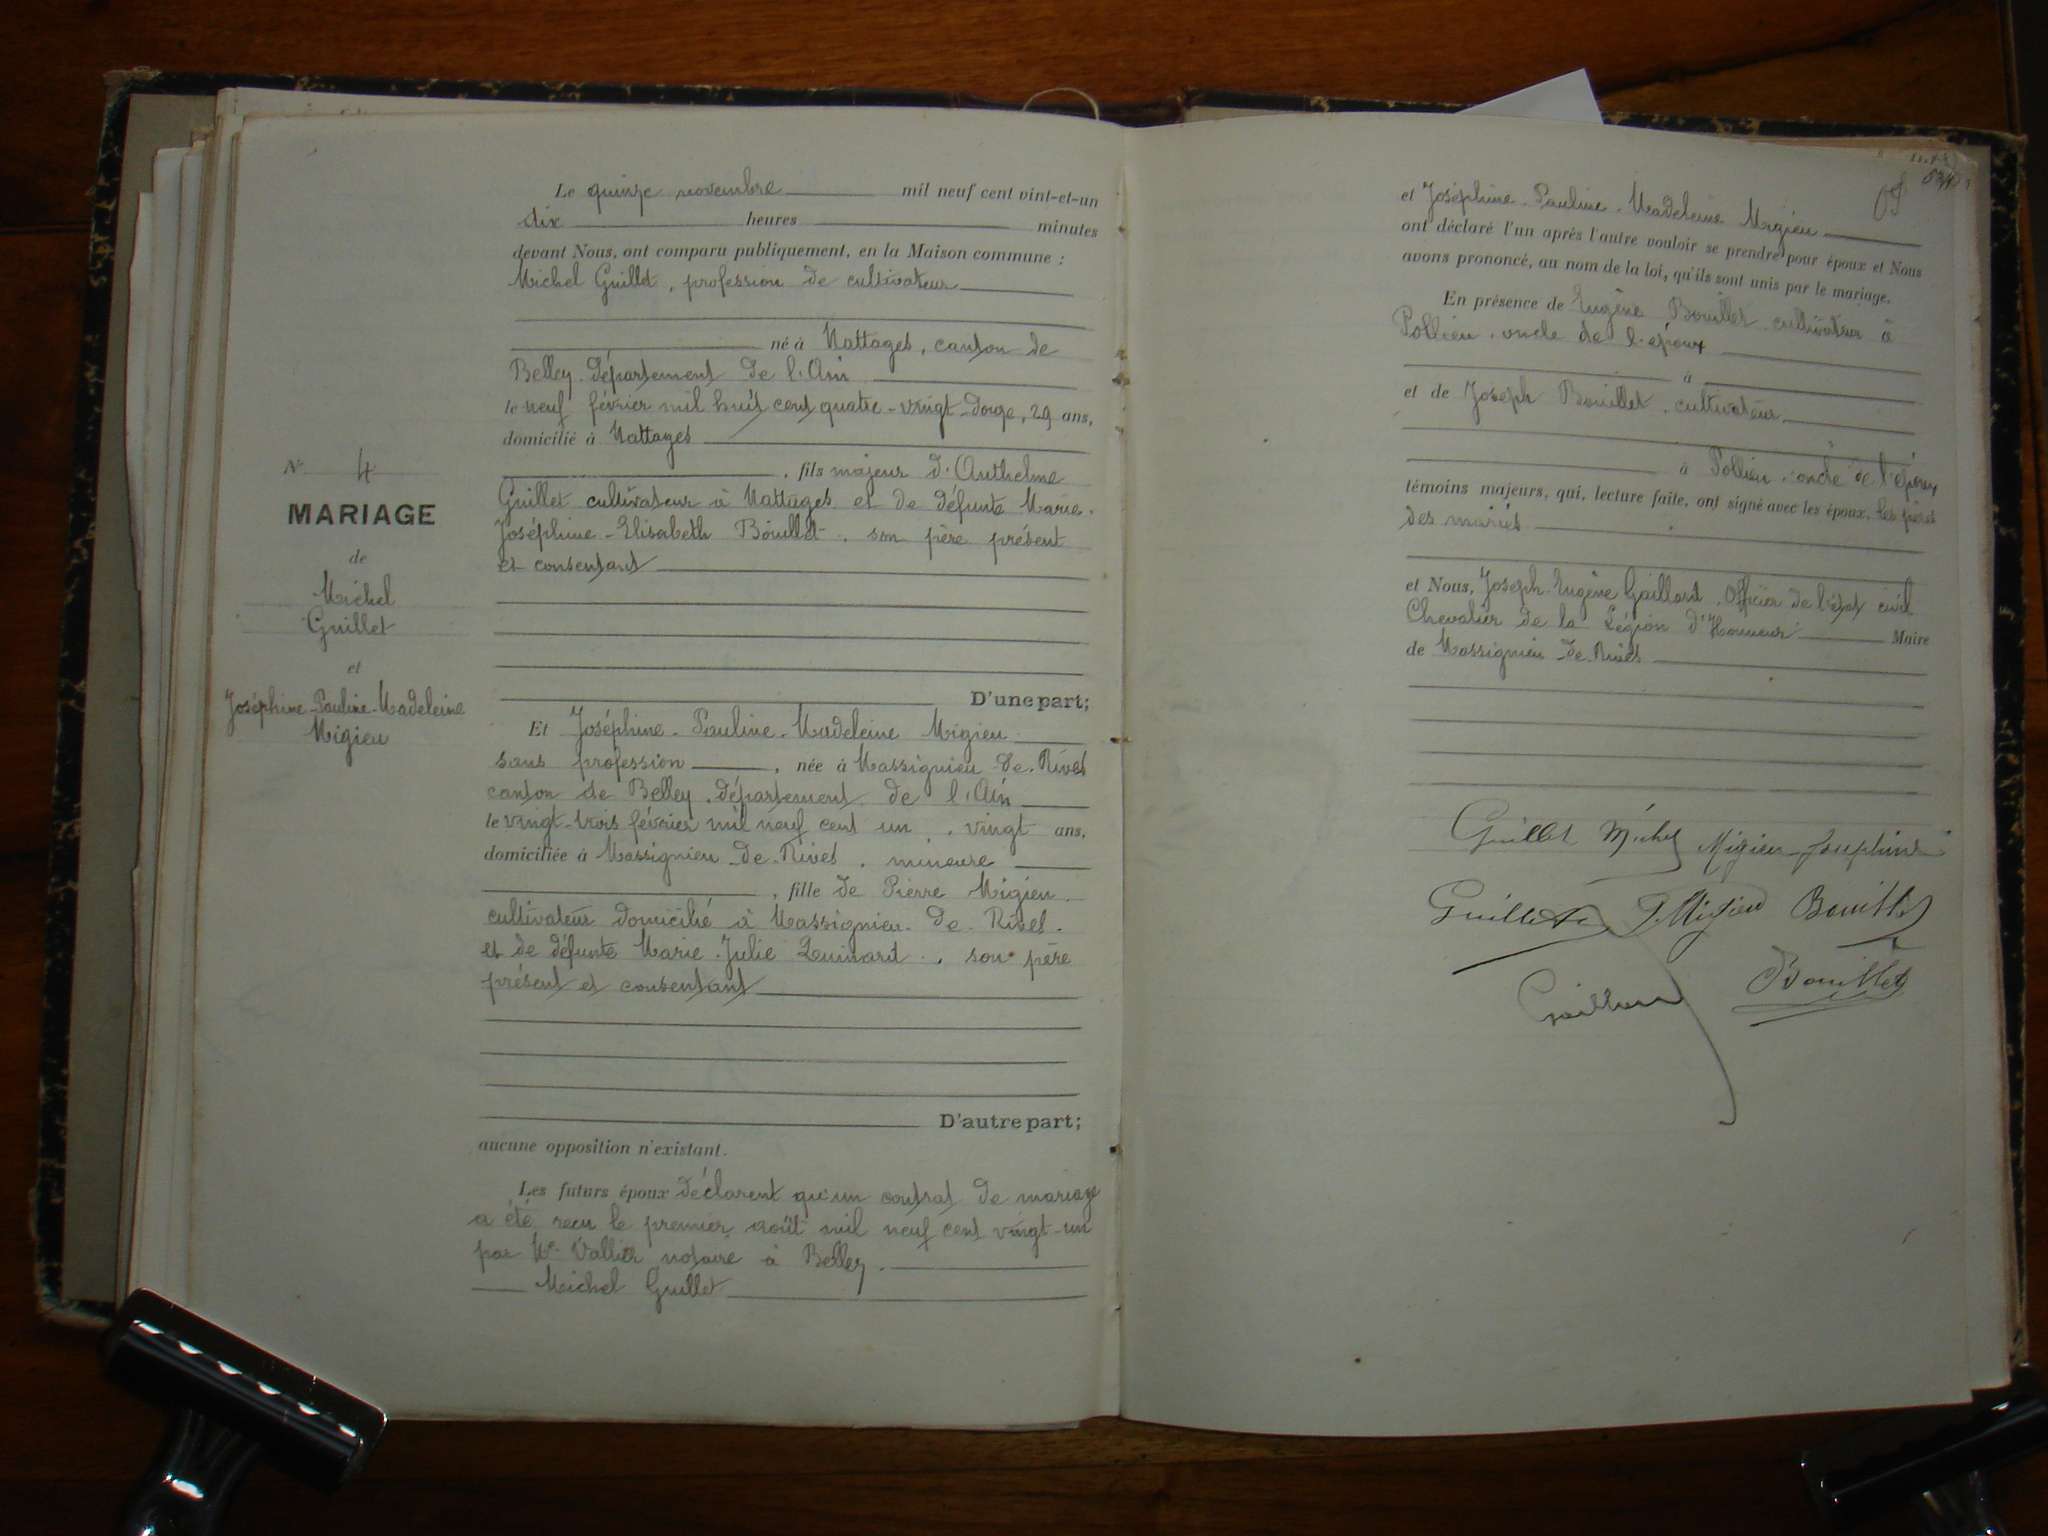 N° 4
MARIAGE
de
Michel
Guillet
et
Joséphine-Pauline-Madeleine
Migieu
Le quinze novembre mil neuf cent vint-et-un
dix heures minutes
devant Nous, ont comparu publiquement, en la Maison commune :
Michel Guillet, profession de cultivateur
né à Nattages, canton de
Belley. département de l'Ain
le neuf février mil huit cent quatre-vingt-douze, 29 ans,
domicilié à Nattages
, fils majeur d'Anthelme
Guillet cultivateur à Nattages et de défunte Marie-
Joséphine-Elisabeth Bouillet, son père présent
et consentant
D'une part;
Et Joséphine-Pauline-Madeleine Migieu
sans profession, née à Massignieu-de-Rives
canton de Belley. département de l'Ain
le vingt-trois février mil neuf cent un, vingt ans,
domiciliée à Massignieu-de-Rives, mineure
, fille de Pierre Migieu
cultivateur domicilié à Massignieu-de-Rives.
et de défunte Marie-Julie, son père
présent et consentant
D'autre part;
aucune opposition n'existant.
Les futurs époux déclarent qu'un contrat de mariage
a été recu le premier août mil neuf cent vingt-un
par Me Vallier notaire à Belley.
Michel Guillet
et Joséphine-Pauline-Madeleine Migieu
ont déclaré l'un après l'autre vouloir se prendre pour époux et Nous
avons prononcé, au nom de la loi, qu'ils sont unis par le mariage.
En présence de Eugène Bouillet cultivateur à
Pollieu, oncle de l'époux
à
et de Joseph Bouillet, cultivateur
à Pollieu, oncle de l'époux
témoins majeurs, qui, lecture faite, ont signé avec les époux, les pères
des mariés
et Nous, Joseph-Eugène Gaillard, Officier de l'état civil
Chevalier de la Légion d'Honneur Maire
de Massignieu-de-Rives
Guillet Michel Migieu Josephine
Guillet P. Migieu Bouillet
Gaillard Bouillet